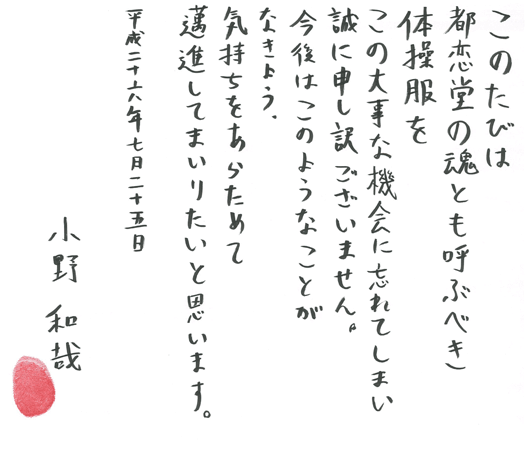 このたびは
都恋堂の魂とも呼ぶべき
体操服を
この大事な機会に忘れてしまい
誠に申し訳ございません。
今後はこのようなことが
なきよう、
気持ちをあらためて
邁進してまいりたいと思います。
平成二十六年七月二十五日
小野 和哉